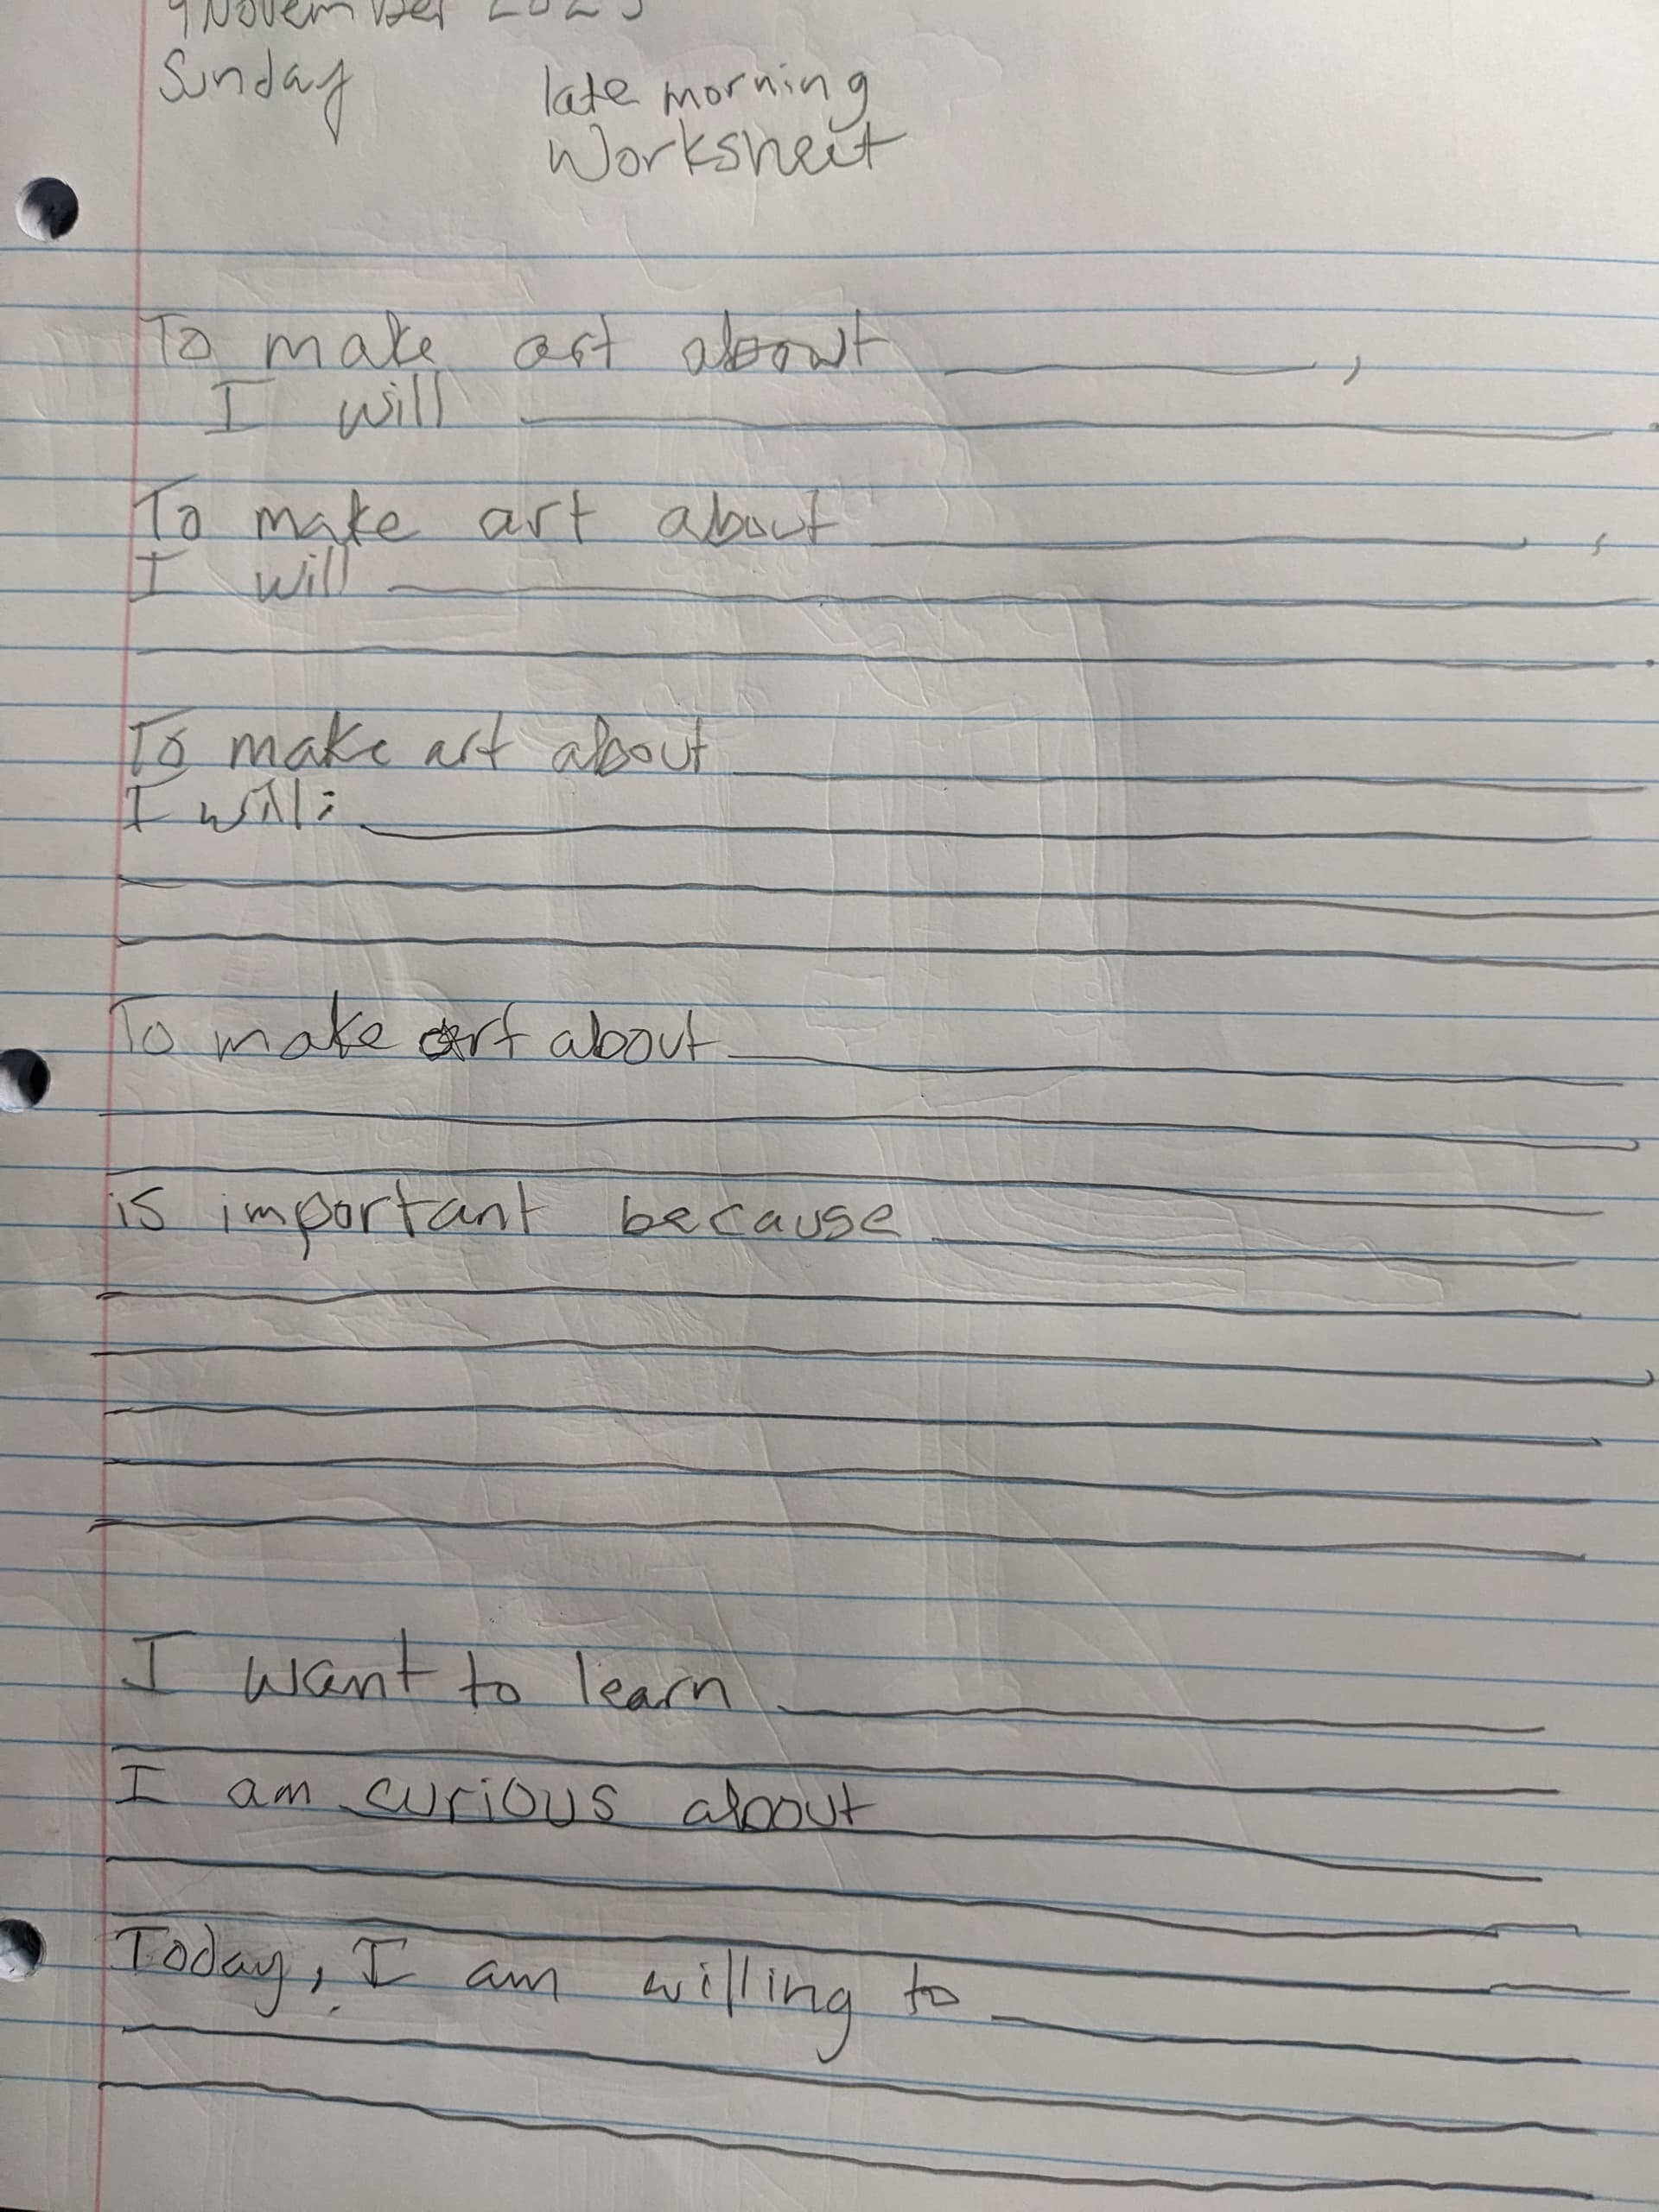 9 November 2025
Sunday
late morning
Worksheet
To make art about ________,
I will ________.
To make art about ________,
I will ________
________.
To make art about ________
I will: ________
________
________
To make art about ________
________
________
is important because ________
________
________
________
________
________
I want to learn ________
________
I am curious about ________
________
________
Today, I am willing to ________
________
________